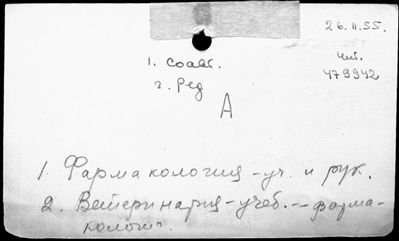 26.II.55.
1. Соавт.
чит.
479942
2. Ред
А
1. Фармакология - уч. и рук.
2. Ветеринария - учеб. -- фарма-
кология.